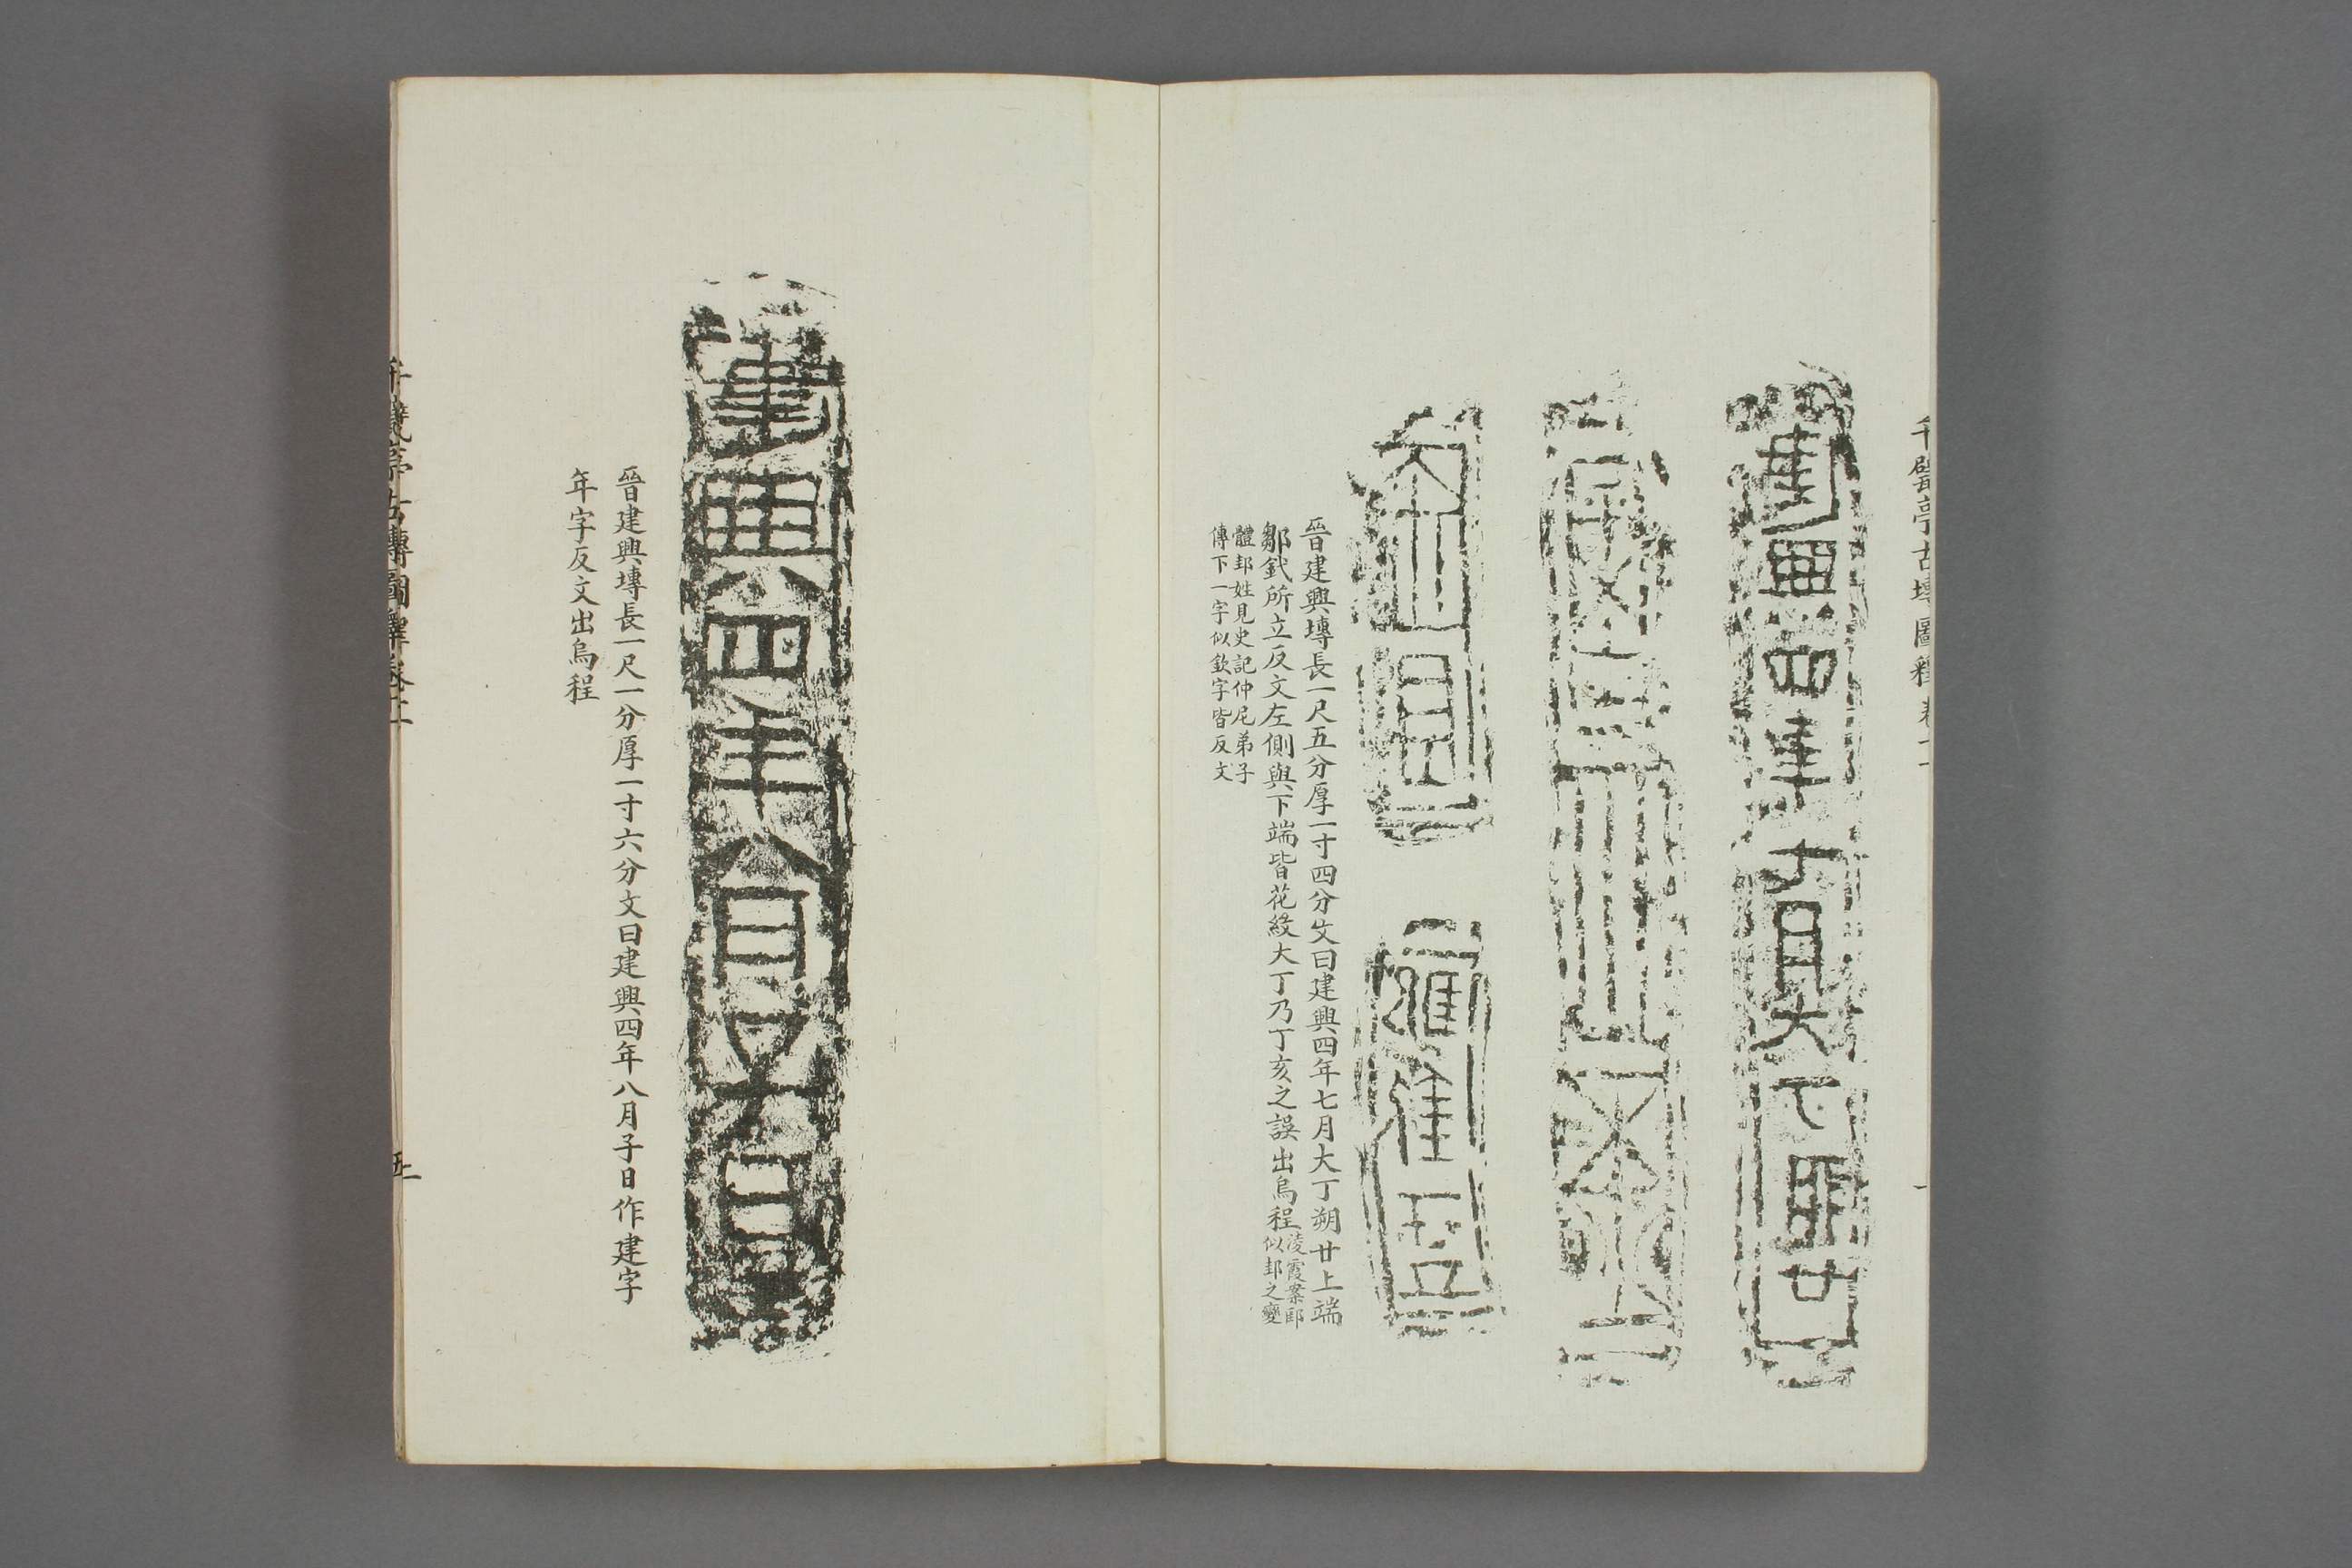 千甓亭古塼圖釋卷十
建興四年七月大丁朔廿
晉建興塼長一尺五分厚一寸四分文曰建興四年七月大丁朔廿上端
鄒釴所立反文左側與下端皆花紋大丁乃丁亥之誤出烏程凌霞案邽似邽之變
體邽姓見史記仲尼弟子
傳下一字似欽字皆反文
建興四年八月子日
晉建興塼長一尺一分厚一寸六分文曰建興四年八月子日作建字
年字反文出烏程
千甓亭古塼圖釋卷十二
五